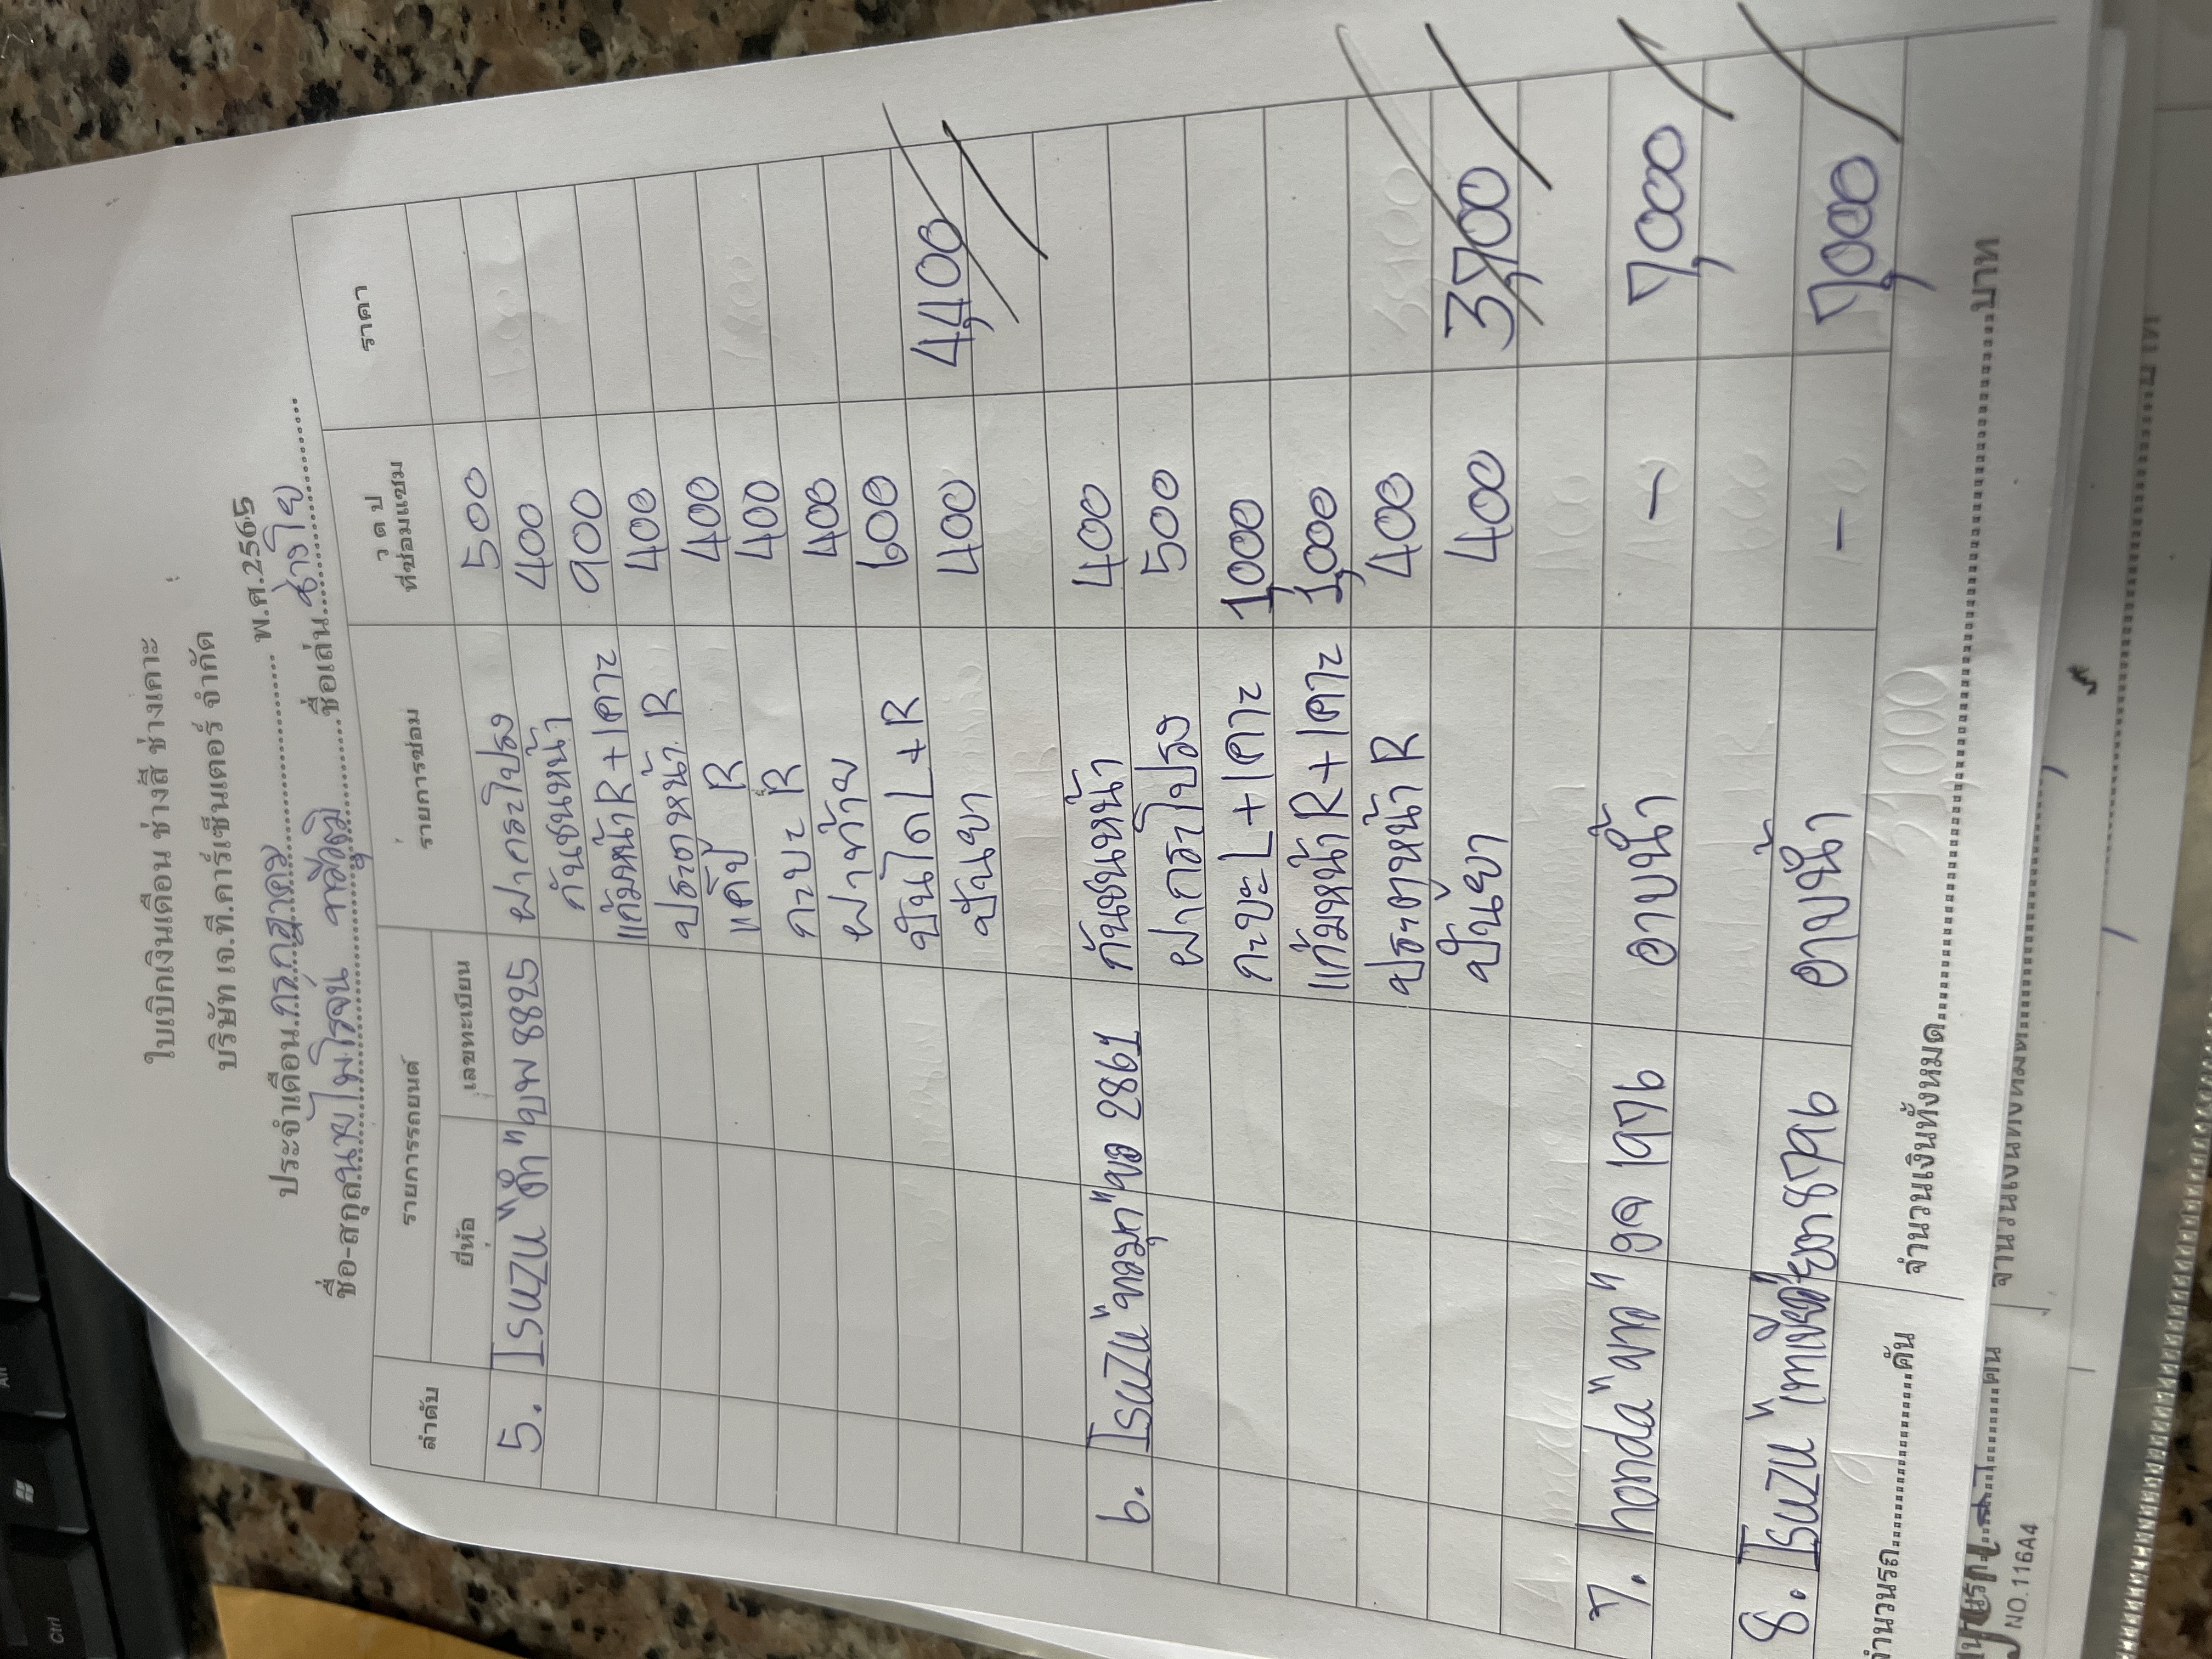 ใบเบิกเงินเดือน ช่างสี ช่างเคาะ
บริษัท เจ.ที.คาร์เซ็นเตอร์ จำกัด
ประจำเดือน กรกฎาคม พ.ศ.2565
ชื่อ-สกุล นายไพโรจน์ ชื่อเล่น ช่างโย
ลำดับ รายการรถยนต์ รายการซ่อม ว ด ป ที่ซ่อมแซม ราคา
ยี่ห้อ เลขทะเบียน
5. Isuzu "ดำ" บพ 8825 ฝากระโปรง 500
กันชนหน้า 400
แก้มหน้า R + เคาะ 900
ประตูหน้า R 400
แค๊ป R 400
กะบะ R 400
ฝาท้าย 400
บันได L+R 600
ปั่นยา 400 4,400
6. Isuzu 2861 กันชนหน้า 400
ฝากระโปรง 500
กะบะ L + เคาะ 1,000
แก้มหน้า R + เคาะ 1,000
ประตูหน้า R 400
ปั่นยา 400 3,700
7. honda "ขาว" 1976 อาบน้ำ - 7,000
8. Isuzu 8796 อาบน้ำ - 7,000
จำนวนรถ คัน จำนวนเงินทั้งหมด บาท
NO.116A4
Ctrl
Alt